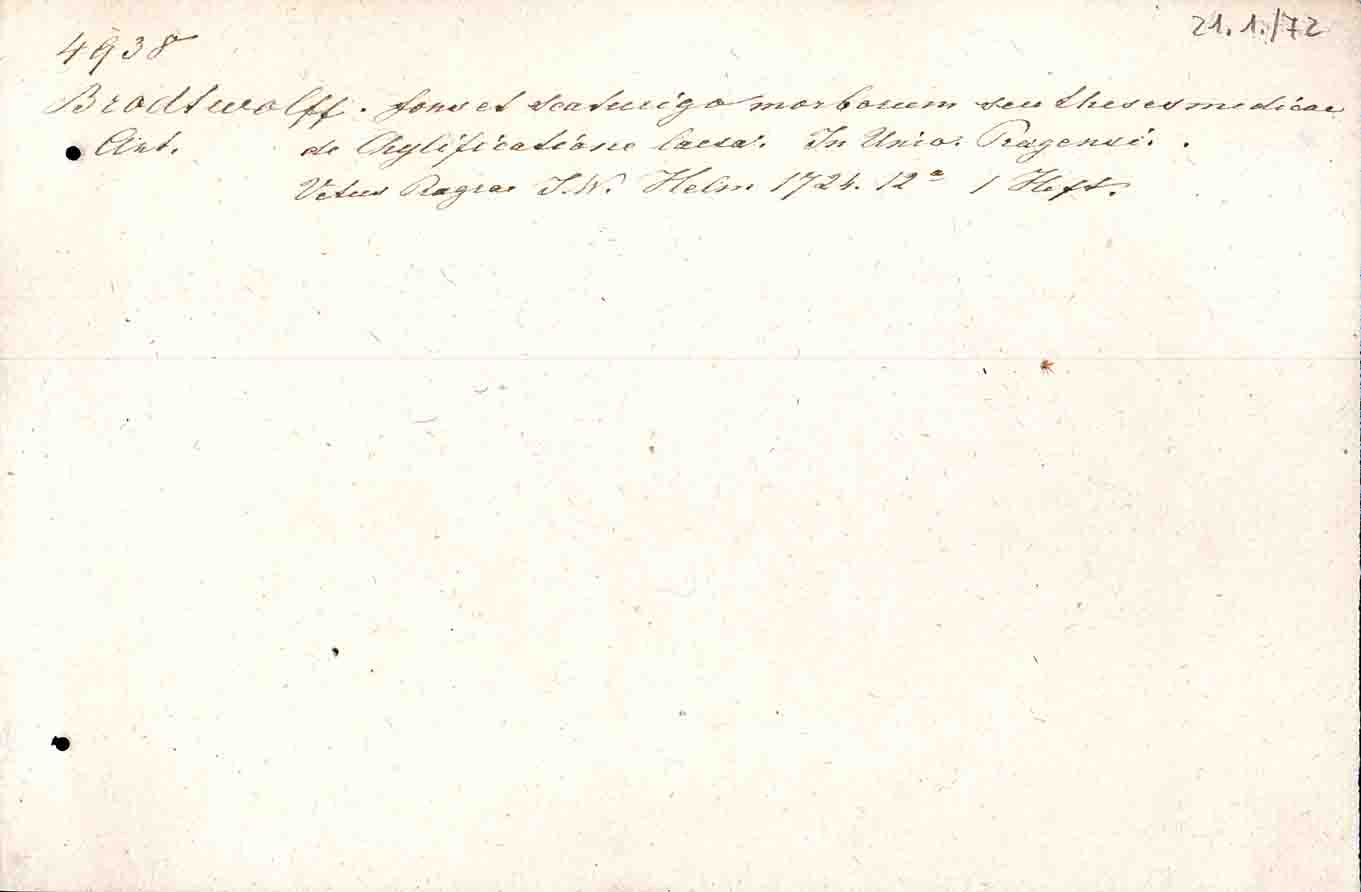 21.1./72
4938
Brodtwolff. fons et scaturigo morborum seu theses medicae
Ant. de Chylificatióne laesa. In Univ. Pragensi.
Vetus Pragae I.W. Helm 1724. 12° 1 Heft.